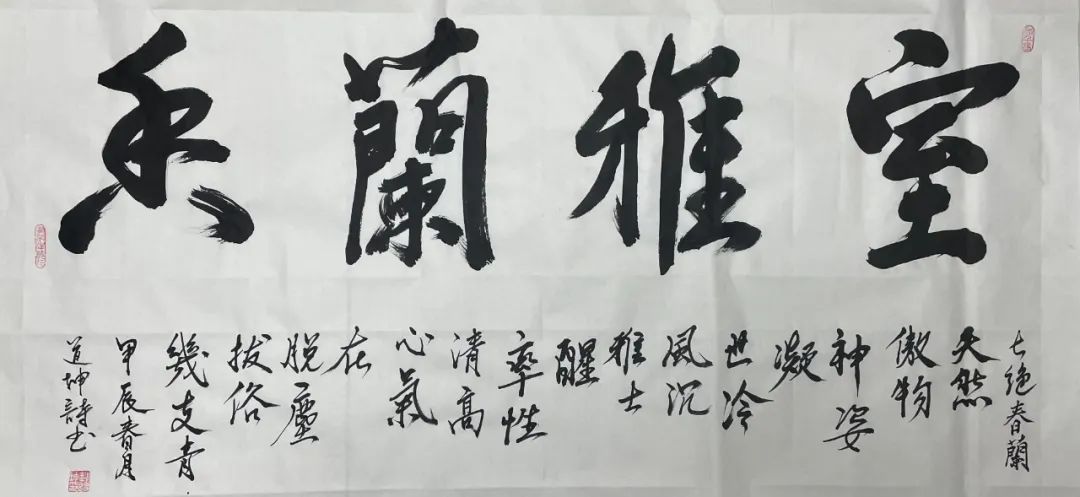 室雅蘭香
七絕春蘭
天然
傲物
神姿
凝
世冷
風沉
雅士
醒
率性
清高
心氣
在
脱塵
拔俗
幾支青
甲辰春月
道坤詩书